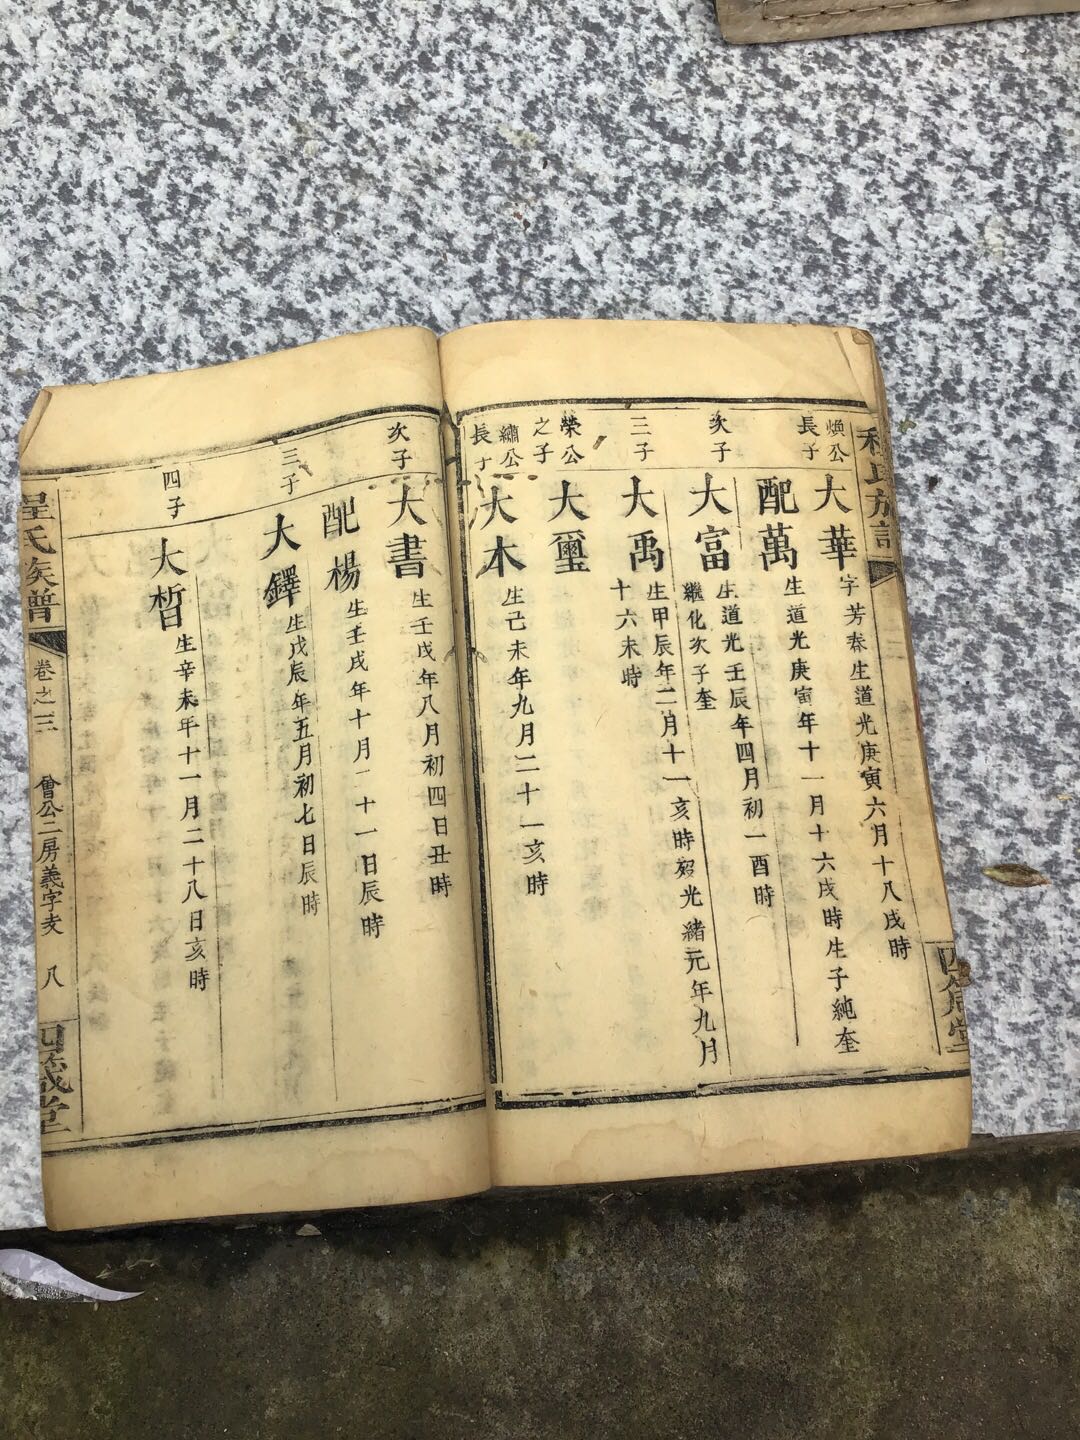 程氏族譜
煥公長子
大華字芳春生道光庚寅六月十八戌時
配萬生道光庚寅年十一月十六戌時生子純奎
次子
大富生道光壬辰年四月初一酉時
繼化次子奎
三子
大禹生甲辰年二月十一亥時歿光緒元年九月
十六未時
榮公之子
大璽
繡公長子
大木生己未年九月二十一亥時
次子
大書生壬戌年八月初四日丑時
配楊生壬戌年十月二十一日辰時
三子
大鐸生戊辰年五月初七日辰時
四子
大晳生辛未年十一月二十八日亥時
程氏族譜
卷之三
曾公二房義字支
八
四箴堂